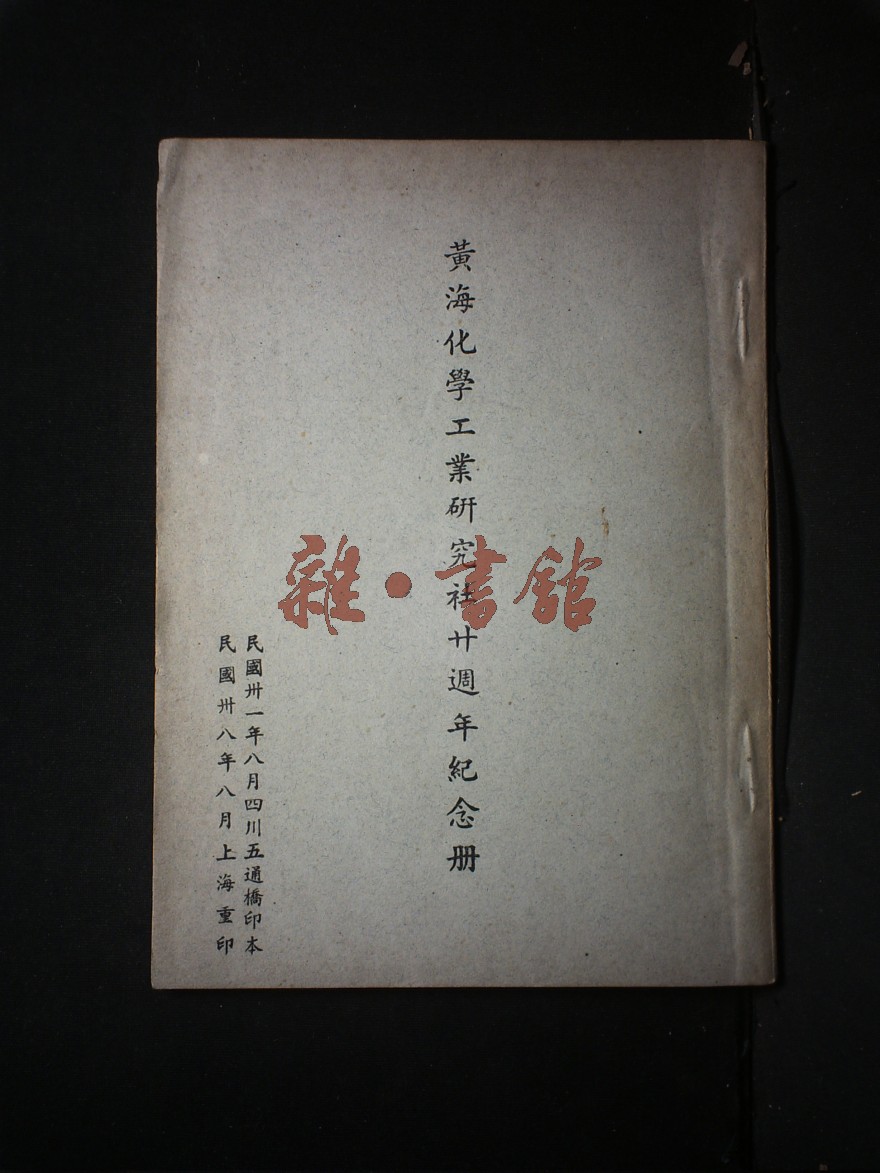 黃海化學工業研究社廿週年紀念册
民國卅一年八月四川五通橋印本
民國卅八年八月上海重印
雜·書館